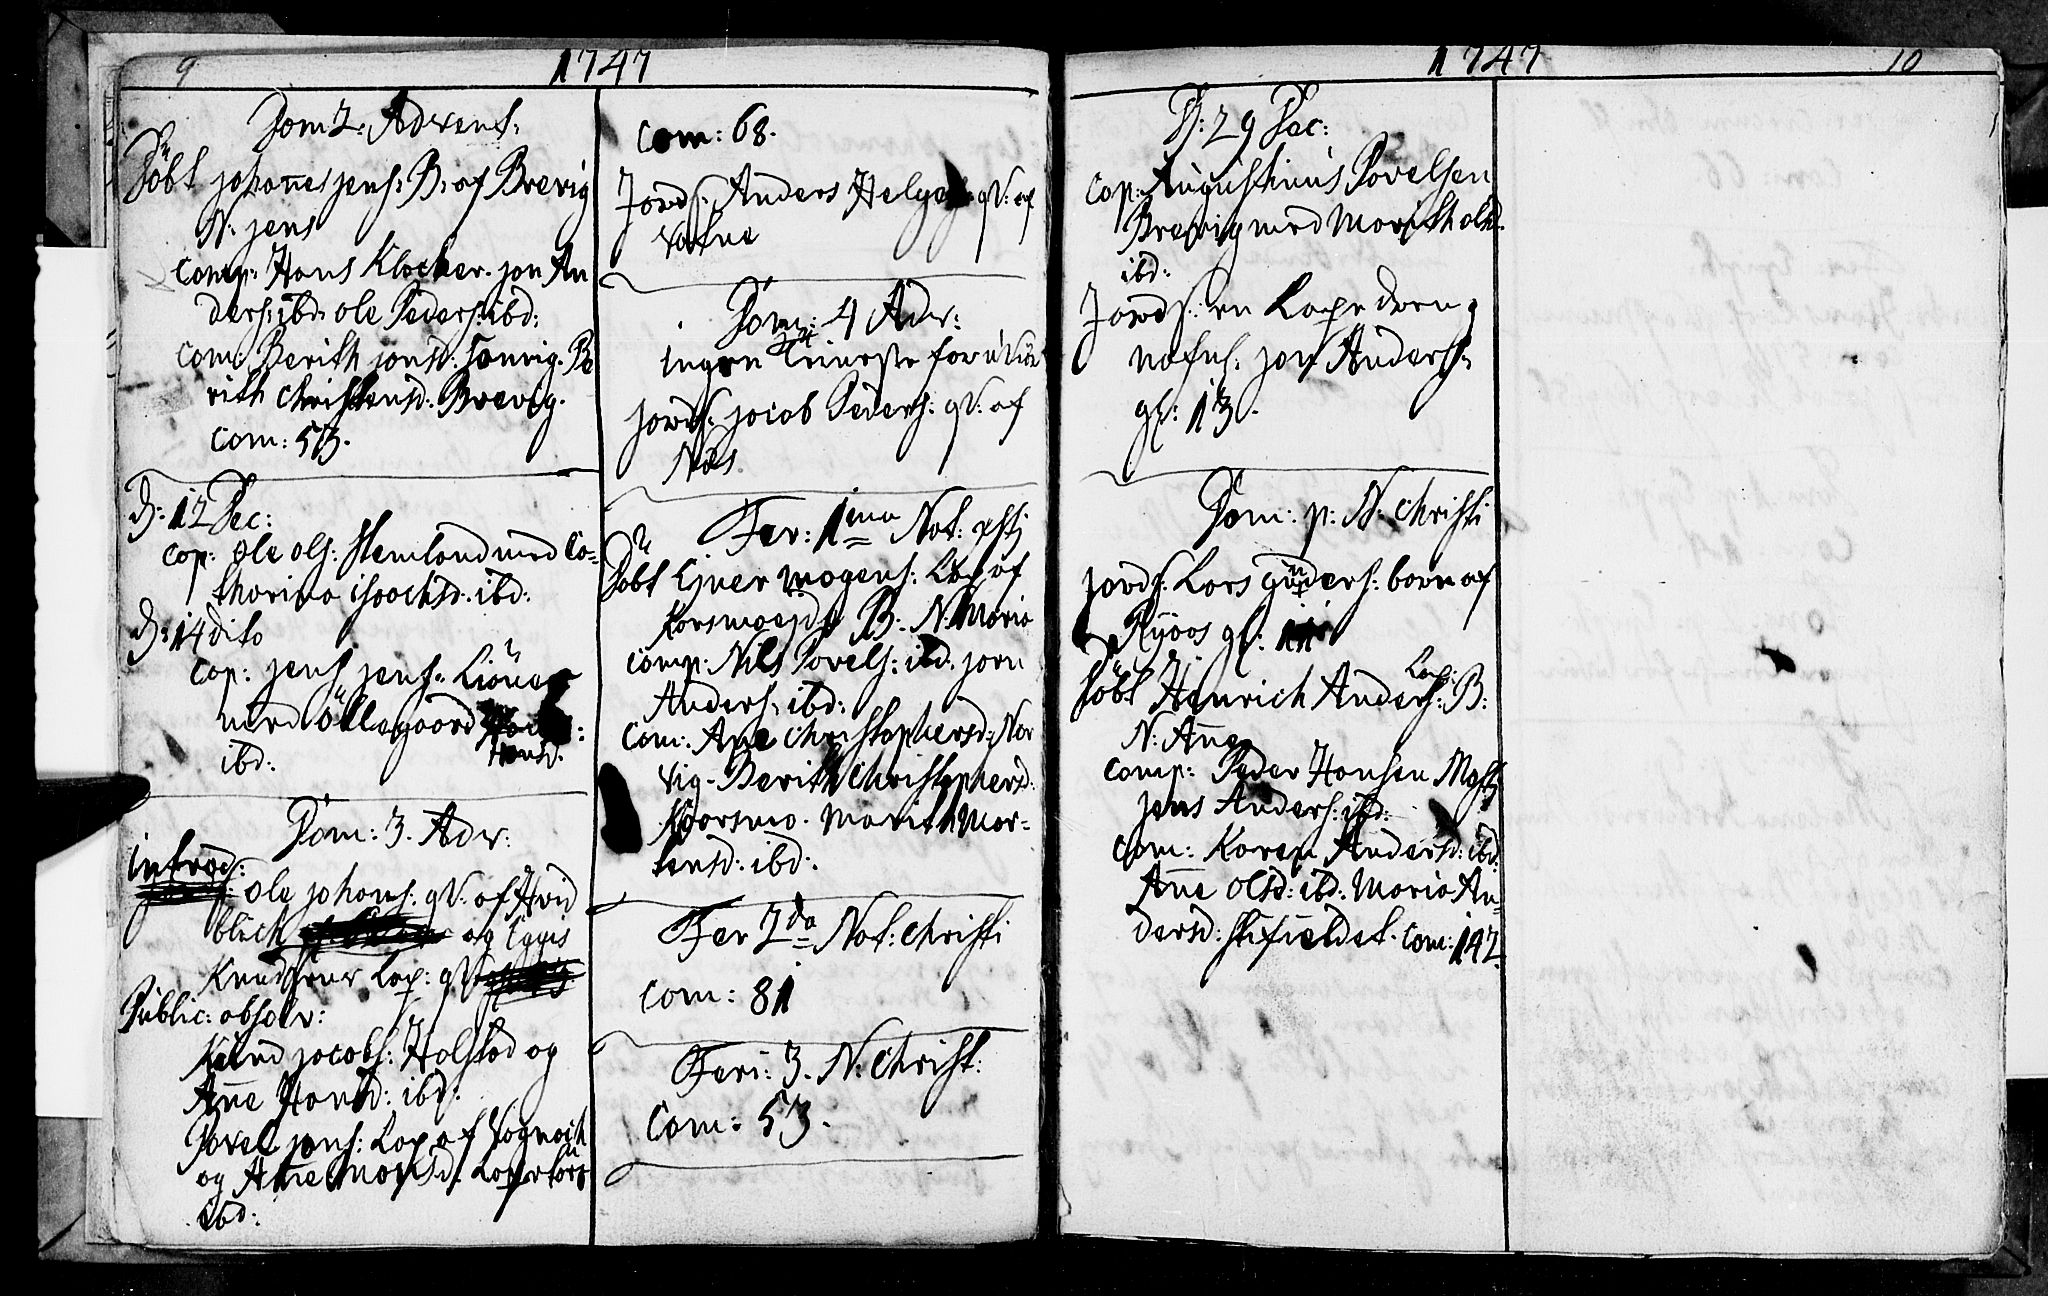 9
1747
Dom 2: Advent:
Döbt Johañes Jens: B: af Brevig
N: Jens
comp: Hans Klocker. Jon An
ders: ibd: ole Peders: ibd:
com: Berith Jonsd: Be
rith Christensd: Brevig.
com: 53.
D: 12 Dec:
cop: ole ols: Hemland med Ca-
tharina Isachsd. ibd:
D: 14 dito
cop: Jens Jens:
med Ollegaard
Hansd:
ibd:
Dom: 3. Adv:
introd:
ole Johans: qv: af Hvid
blich og Eggis
Knudsens Lap: qv:
Public: absolv:
Knud Jacobs: Halstad og
Añe Hansd: ibd:
Povel Jons: Lap af
og Añe
ibd:
com: 68.
Jords: Anders Helges: qv: af
Dom: 4 Adv:
ingen Tieneste for
jords: Jacob Peders: qv: af
Næs.
Fer: 1ma Nat: xsti
Döbt Ejner Mogens: Lap af
Korsmoe B: N: Maria
comp: Nils Povels: ibd: Jorn
Anders: ibd:
com: Añe Christophersd: Nor
vig. Berith Christophersd:
Korsmo. Marith Mor-
tensd: ibd:
Fer 2da Nat: Christi
com: 81
Feri: 3. N: Christ:
com: 53.
1747
10
D: 29 Dec:
cop: Augustinus Povelsen
Brevig med Marith olsd.
ibd:
Jords: en Lape dreng
nafnl: Jon Anders:
gl: 13.
Dom: p: N: Christi
jords: Lars Gunders: barn af
Ryaas gl: 11
Döbt Henrich Anders: Lap: B:
N: Añe
comp: Peder Hansen
Jens Anders: ibd:
com: Karen Andersd: ibd:
Añe olsd: ibd: Maria An-
dersd: com: 142.